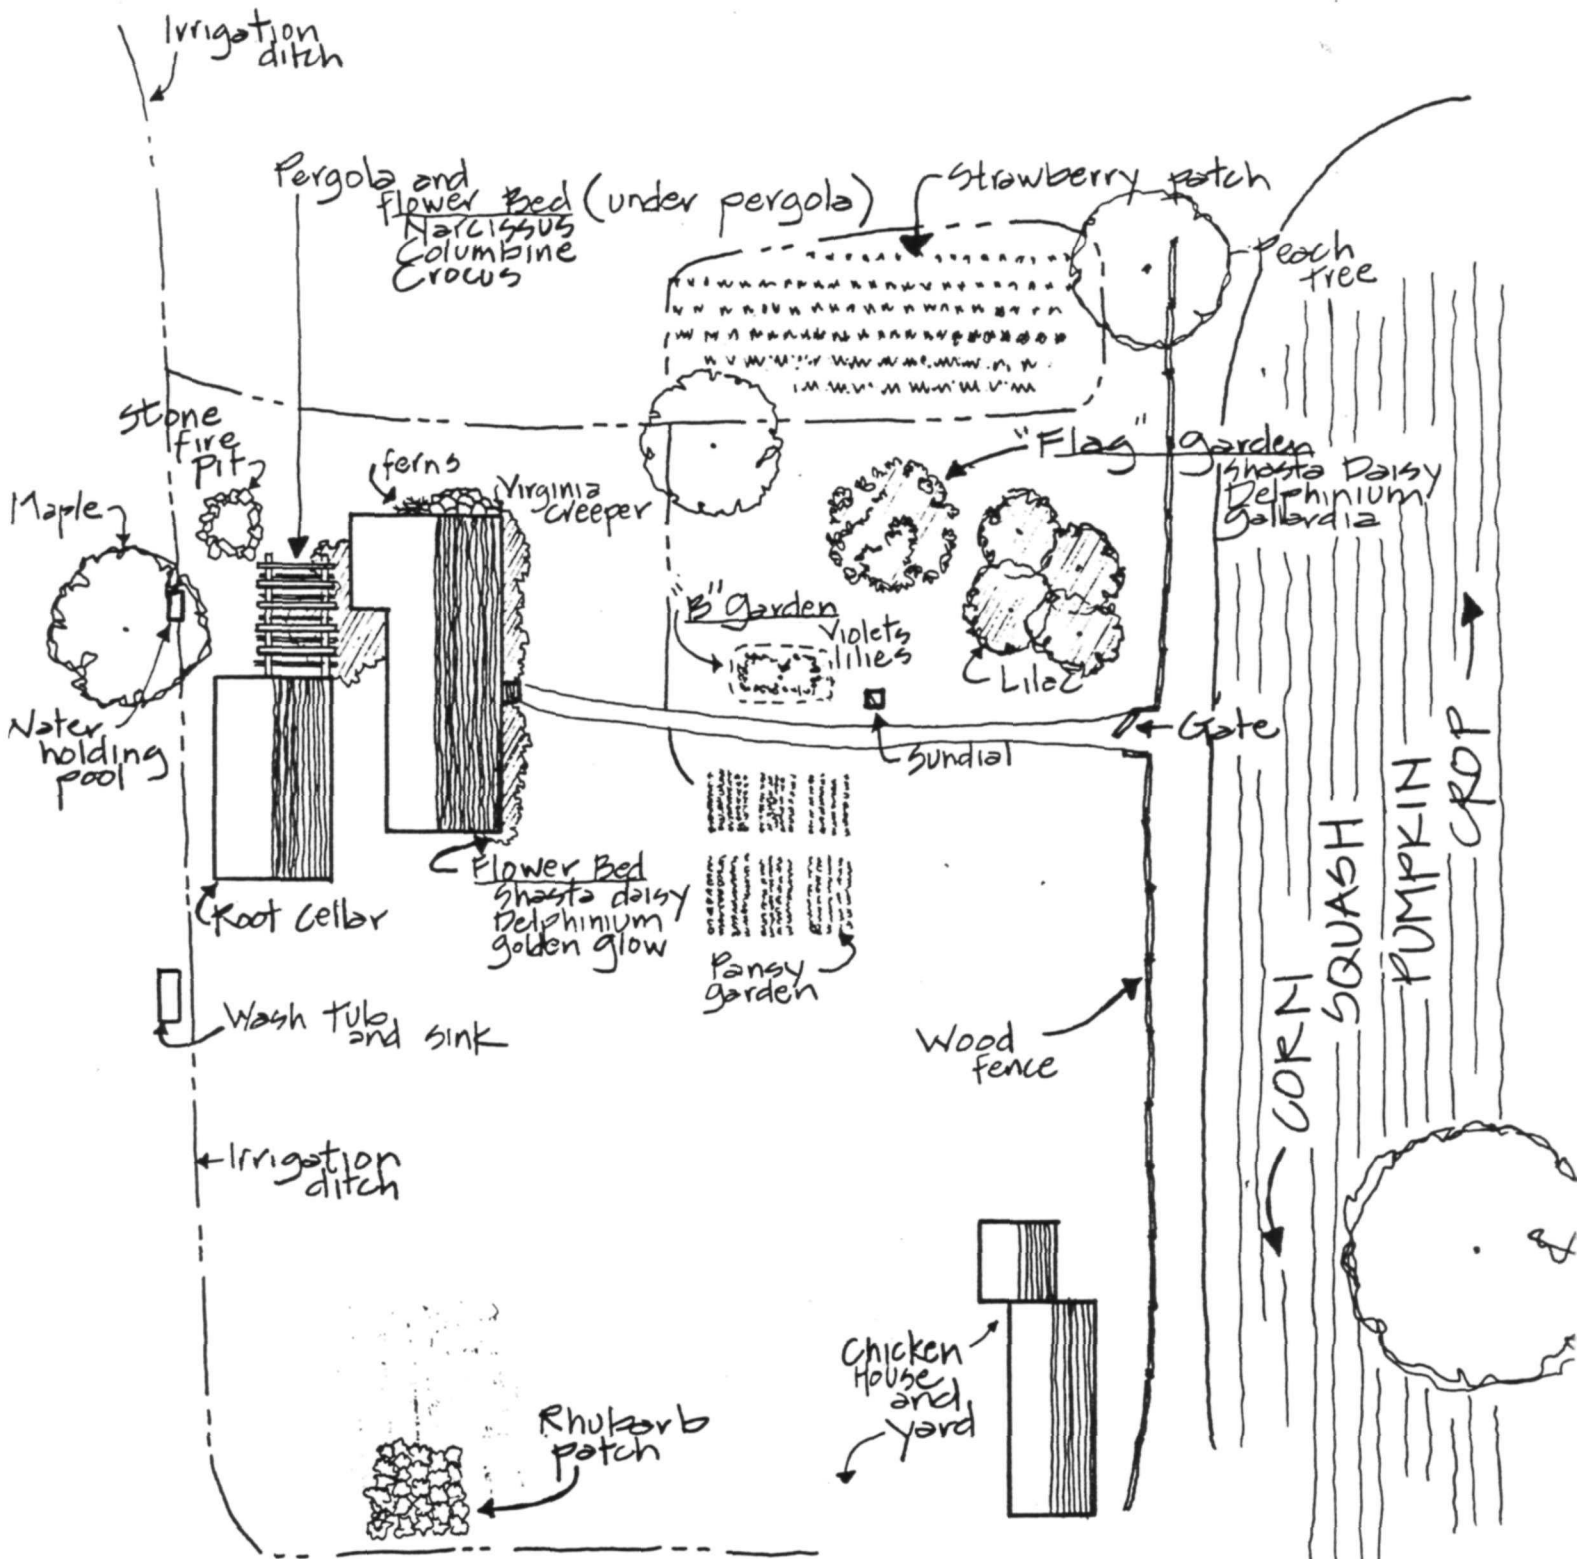 Irrigation
ditch
Pergola and
flower Bed (under pergola)
Narcissus
Columbine
Crocus
Strawberry patch
Peach
tree
Stone
fire
pit
ferns
Virginia
creeper
"Flag" garden
Shasta Daisy
Delphinium
Gallardia
Maple
"B" Garden
Violets
lilies
Lilac
Water
holding
pool
Gate
Sundial
Root Cellar
Flower Bed
Shasta daisy
Delphinium
golden glow
Pansy
garden
Wash Tub
and sink
Wood
fence
CORN
SQUASH
PUMPKIN
CROP
Irrigation
ditch
Chicken
House
and
yard
Rhubarb
patch